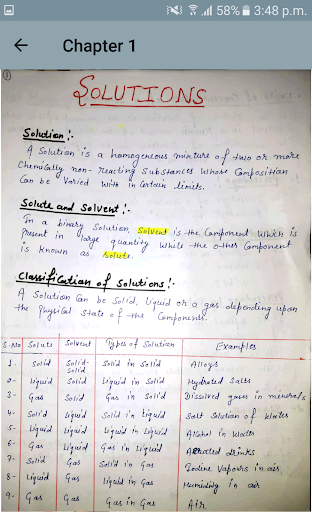 58% 3:48 p.m.
Chapter 1
1
SOLUTIONS
Solution :-
A Solution is a homogeneous mixture of two or more
Chemically non-reacting Substances whose Composition
Can be Varied with in Certain limits.
Solute and Solvent :-
In a binary Solution, Solvent is the Component which is
Present in large quantity while the other Component
is known as Solute.
Classification of Solutions :-
A Solution Can be Solid, liquid or a gas depending upon
the physical state of the Components.
S.No Solute Solvent Types of Solution Examples
1- Solid Solid Solid in Solid Alloys
Solid
2- Liquid Solid Liquid in Solid Hydrated Salts
3- Gas Solid Gas in Solid Dissolved gases in minerals
4- Solid Liquid Solid in Liquid Salt Solution of Water
5- Liquid Liquid Liquid in Liquid Alcohol in Water
6- Gas Liquid Gas in Liquid Aerated drinks
7- Solid Gas Solid in Gas Iodine Vapours in air
8- Liquid Gas Liquid in Gas Humidity in air
9- Gas Gas Gas in Gas Air